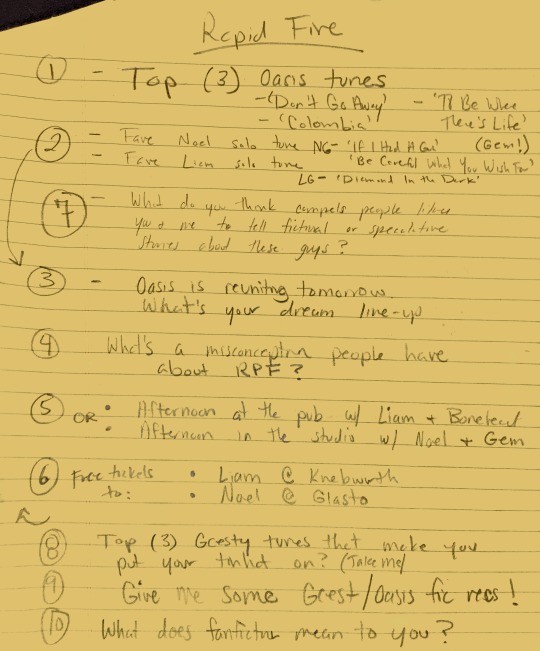 Rapid Fire
① - Top (3) Oasis tunes
- 'Don't Go Away' - 'I'll Be Where
- 'Colombia' There's Life'
② - Fave Noel solo tune NG- 'If I Had A Gun' (Gem!)
- Fave Liam solo tune 'Be Careful What You Wish For'
LG- 'Diamond In the Dark'
⑦ - What do you think compels people like
you + me to tell fictional or speculative
stories about these guys?
③ - Oasis is reuniting tomorrow.
What's your dream line-up
④ What's a misconception people have
about RPF?
⑤ OR: • Afternoon at the pub w/ Liam + Bonehead
• Afternoon in the studio w/ Noel + Gem
⑥ Free tickets • Liam @ Knebworth
to: • Noel @ Glasto
⑧ Top (3) Gcesty tunes that make you
put your tinhat on? (Take me)
⑨ Give me some Gcest/Oasis fic recs!
⑩ What does fanfiction mean to you?